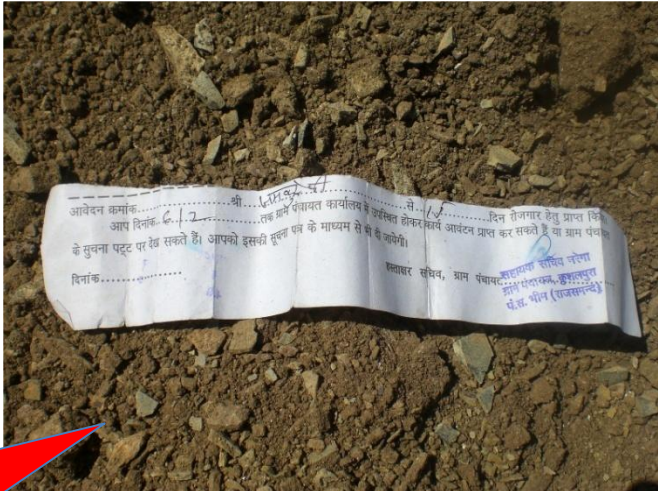 आवेदन क्रमांक...............श्री.....................से....15......दिन रोजगार हेतु प्राप्त
आप दिनांक 6.1.2..........तक ग्राम पंचायत कार्यालय में उपस्थित होकर कार्य आवंटन प्राप्त कर सकते हैं या ग्राम पंचायत
के सुचना पट्ट पर देख सकते हैं। आपको इसकी सूचना पत्र के माध्यम से भी दी जायेगी।
दिनांक.................
हस्ताक्षर सचिव, ग्राम पंचायत
सहायक सचिव नरेगा
ग्राम पंचायत, कुशलपुरा
पं.स. भीम (राजसमन्द)